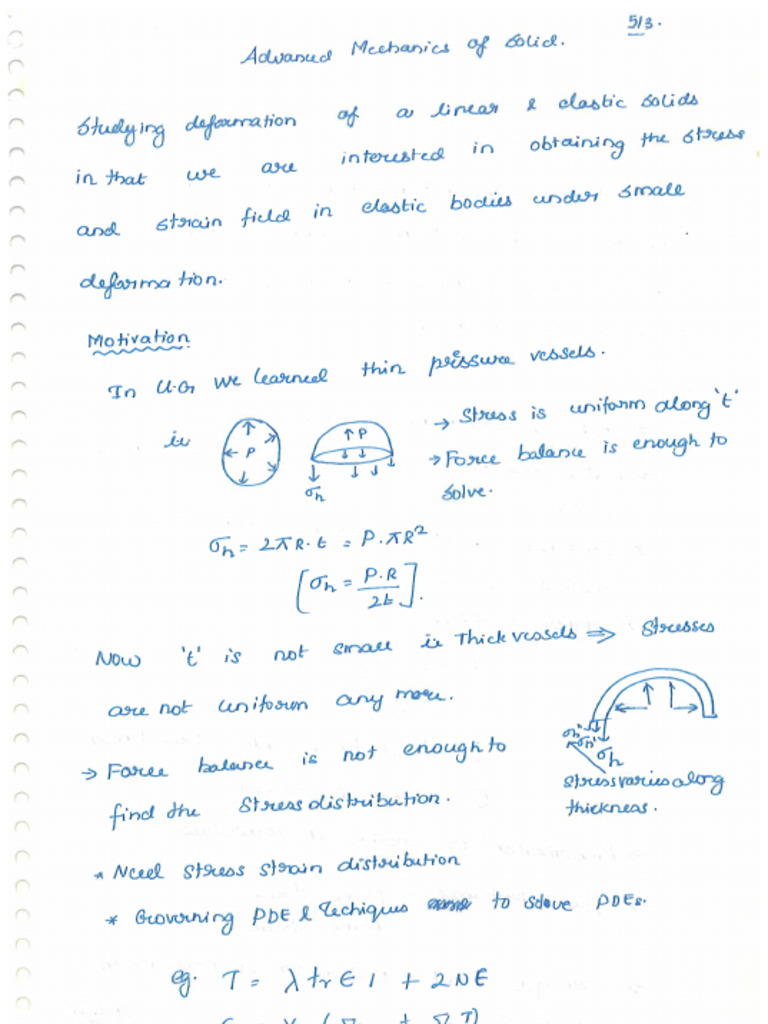 5/3.
Advanced Mechanics of Solid.
Studying deformation of a linear & elastic solids
in that we are interested in obtaining the stress
and strain field in elastic bodies under small
deformation.
Motivation
In U.G we learned thin pressure vessels.
ie
P
↑P
σh
→ Stress is uniform along 't'
→ Force balance is enough to
solve.
σh = 2πR·t = P·πR²
[σh = P·R/2t].
Now 't' is not small ie Thick vessels ⇒ Stresses
are not uniform any more.
→ Force balance is not enough to
find the Stress distribution.
σh
Stress varies along
thickness.
* Need stress strain distribution
* Governing PDE & Techiques to solve PDEs.
eg. T = λ tr E 1 + 2NE